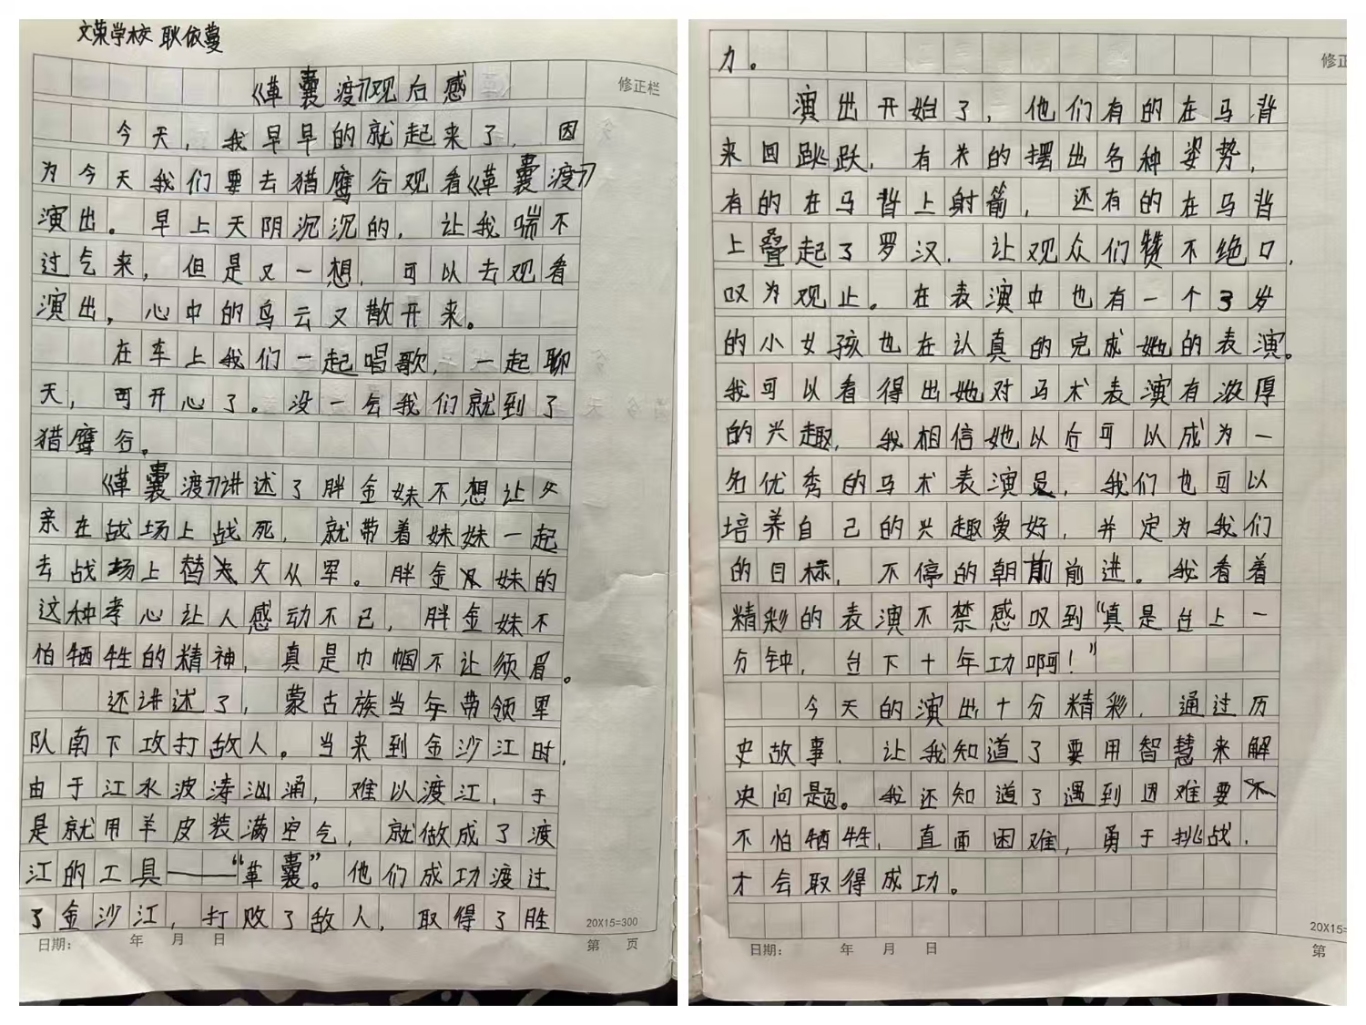 文荣学校 耿依蔓
《革囊渡》观后感
修正栏
今天，我早早的就起来了，因
为今天我们要去猎鹰谷观看《革囊渡》
演出。早上天阴沉沉的，让我喘不
过气来，但是又一想，可以去观看
演出，心中的乌云又散开来。
在车上我们一起唱歌，一起聊
天，可开心了。没一会我们就到了
猎鹰谷。
《革囊渡》讲述了胖金妹不想让父
亲在战场上战死，就带着妹妹一起
去战场上替父从军。胖金妹的
这种孝心让人感动不已，胖金妹不
怕牺牲的精神，真是巾帼不让须眉。
还讲述了，蒙古族当年带领军
队南下攻打敌人。当来到金沙江时，
由于江水波涛汹涌，难以渡江，于
是就用羊皮装满空气，就做成了渡
江的工具——“革囊”。他们成功渡过
了金沙江，打败了敌人，取得了胜
20X15=300
日期： 年 月 日 第 页
力。
修正
演出开始了，他们有的在马背
来回跳跃，有关的摆出各种姿势，
有的在马背上射箭，还有的在马背
上叠起了罗汉，让观众们赞不绝口，
叹为观止。在表演中也有一个3岁
的小女孩也在认真的完成她的表演。
我可以看得出她对马术表演有浓厚
的兴趣，我相信她以后可以成为一
名优秀的马术表演员，我们也可以
培养自己的兴趣爱好，并定为我们
的目标，不停的朝前前进。我看着
精彩的表演不禁感叹到“真是台上一
分钟，台下十年功啊！”
今天的演出十分精彩，通过历
史故事，让我知道了要用智慧来解
决问题。我还知道了遇到困难要
不怕牺牲，直面困难，勇于挑战，
才会取得成功。
20X15=
日期： 年 月 日 第